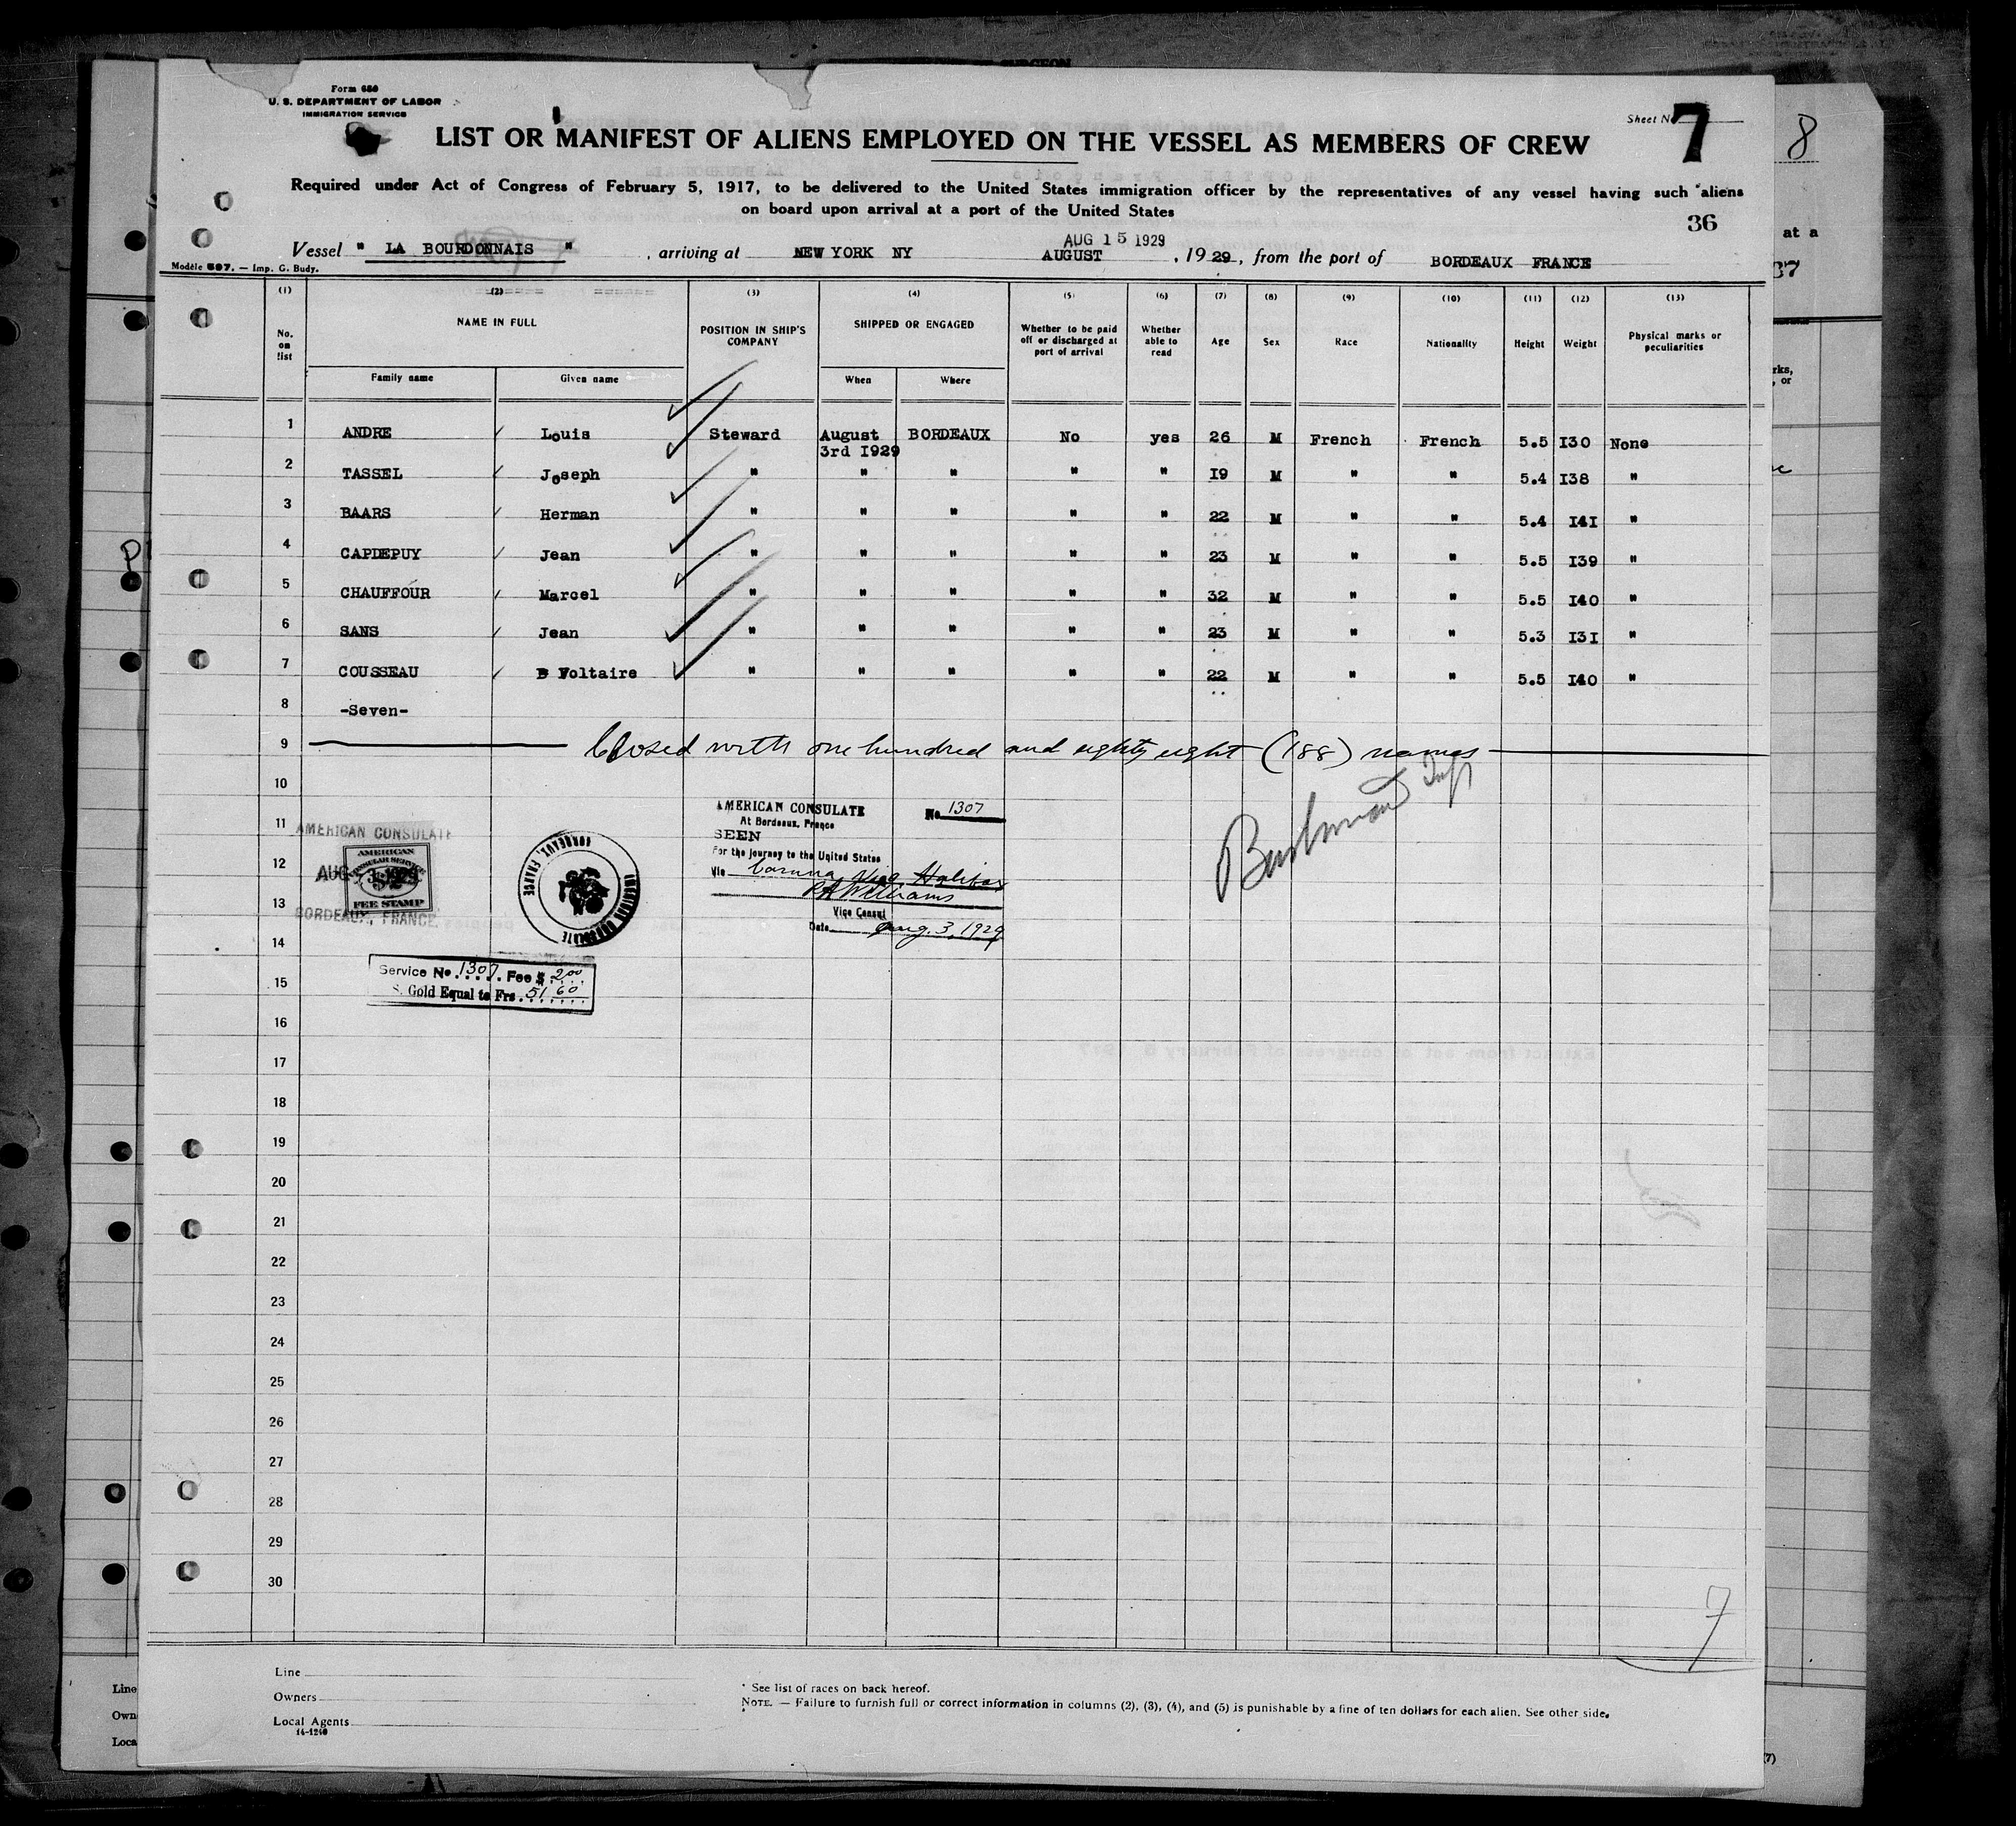 Form 680
U. S. DEPARTMENT OF LABOR
IMMIGRATION SERVICE
Sheet No 7
8
LIST OR MANIFEST OF ALIENS EMPLOYED ON THE VESSEL AS MEMBERS OF CREW
Required under Act of Congress of February 5, 1917, to be delivered to the United States immigration officer by the representatives of any vessel having such aliens
on board upon arrival at a port of the United States
36
at a
AUG 15 1929
Vessel " LA BOURDONNAIS " , arriving at NEW YORK NY AUGUST , 1929, from the port of BORDEAUX FRANCE
Modèle 597. — Imp. G. Budy.
37
(1) (2) (3) (4) (5) (6) (7) (8) (9) (10) (11) (12) (13)
No. on list NAME IN FULL POSITION IN SHIP'S COMPANY SHIPPED OR ENGAGED Whether to be paid off or discharged at port of arrival Whether able to read Age Sex Race Nationality Height Weight Physical marks or peculiarities
Family name Given name When Where
1 ANDRE Louis Steward August 3rd 1929 BORDEAUX No yes 26 M French French 5.5 I30 None
2 TASSEL Joseph " " " " " I9 M " " 5.4 I38 "
3 BAARS Herman " " " " " 22 M " " 5.4 I4I "
4 CAPDEPUY Jean " " " " " 23 M " " 5.5 I39 "
5 CHAUFFOUR Marcel " " " " " 32 M " " 5.5 I40 "
6 SANS Jean " " " " " 23 M " " 5.3 I3I "
7 COUSSEAU Voltaire " " " " " 22 M " " 5.5 I40 "
8 -Seven-
9 Closed with one hundred and eighty eight (188) names
10
11
12
13
14
15
16
17
18
19
20
21
22
23
24
25
26
27
28
29
30
AMERICAN CONSULATE
AMERICAN
CONSULAR SERVICE
AUG - 3 1929
$2
FEE STAMP
BORDEAUX, FRANCE.
AMERICAN CONSULATE
BORDEAUX, FRANCE
AMERICAN CONSULATE No 1307
At Bordeaux, France
SEEN
For the journey to the United States
Via Halifax
R A Williams
Vice Consul
Date Aug. 3, 1929
Service No 1307 Fee $ 2.00
S. Gold Equal to Frs. 51.60
7
Line
Owners
Local Agents
14-1240
* See list of races on back hereof.
NOTE. — Failure to furnish full or correct information in columns (2), (3), (4), and (5) is punishable by a fine of ten dollars for each alien. See other side.
Line
Own
Loca